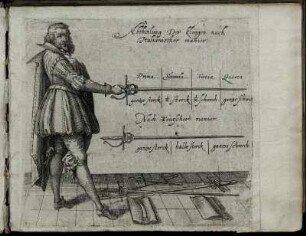 Abtheilung Der Klingen nach
Italienischer manier
Prima Secunda Tertia Quarta
gantze sterck ½ sterck ½ schwech gantze schwech
Nach Teutscher manier
gantze sterck halbe sterck gantze schwech